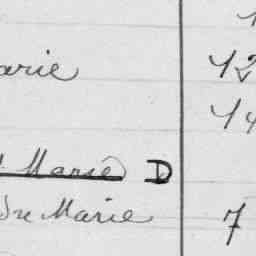 arie 12
14
Marie D
Dre Marie 7